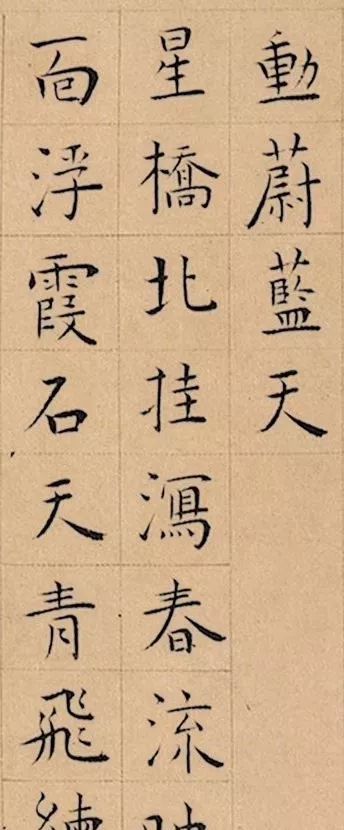 動蔚藍天
星橋北挂瀉春流
面浮霞石天青飛